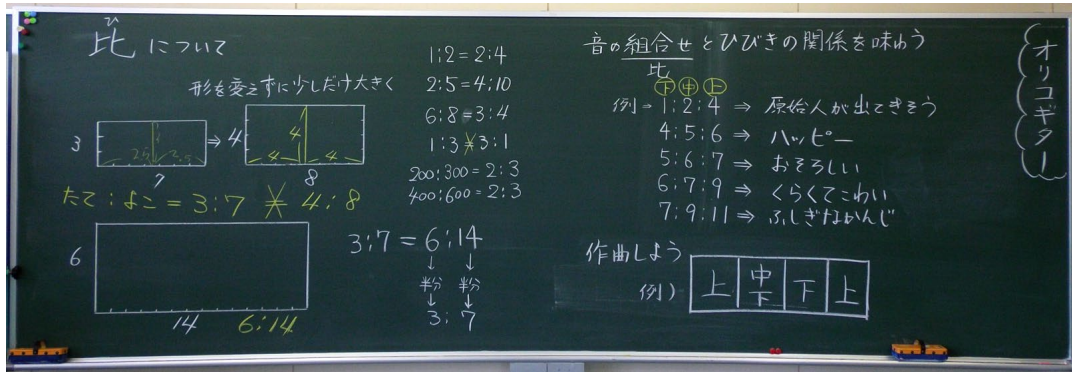 比について
ひ
形を変えずに少しだけ大きく
3
7
⇒
4
8
4
4 4
たて:よこ=3:7 ≠ 4:8
6
14
6:14
1:2=2:4
2:5=4:10
6:8=3:4
1:3≠3:1
200:300=2:3
400:600=2:3
3:7=6:14
↓ ↓
半分 半分
↓ ↓
3:7
音の組合せとひびきの関係を味わう
比
下 中 上
例→1:2:4 ⇒ 原始人が出てきそう
4:5:6 ⇒ ハッピー
5:6:7 ⇒ おそろしい
6:7:9 ⇒ くらくてこわい
7:9:11 ⇒ ふしぎなかんじ
作曲しよう
例)
上 中下 下 上
オリコギター